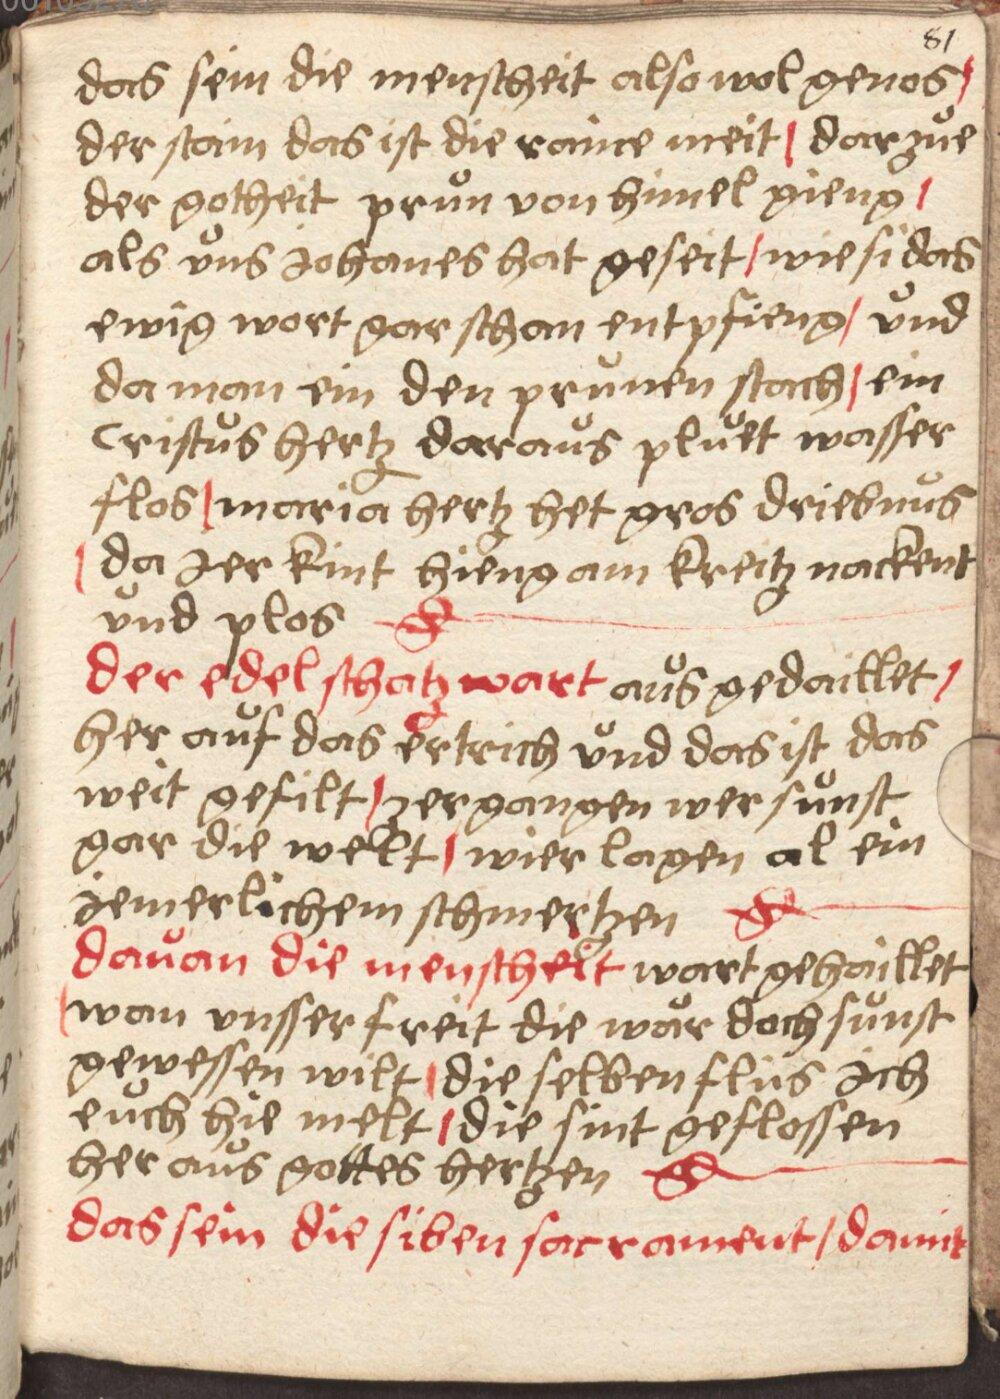 81
das sein die menscheit also wol genos /
der stain das ist die raine meit / dar zue
der gotheit průn von himel gieng /
als ůns Johanes hat geseit / wie si das
ewig wort gar schan entpfieng / ůnd
da man ein den průnen stach / ein
Cristůs hertz daraůs plůet wasser
flos / maria hertz het gros driebnůs
/ da Jer kint hieng am kreitz nackent
ůnd plos
der edel schatz wart aůs gedaillet /
her aůf das ertrich ůnd das ist das
weit gefilt / zergangen wer sůnst
gar die welt / wier lagen al ein
jemerlichem schmertzen
daůan die menscheit wart gehaillet
/ wan vnsser freit die wår doch sůnst
gewessen wilt / die selben flüs Jch
eůch hie melt / die sint geflossen
her aůs gottes hertzen
das sein die siben sacrament / damit